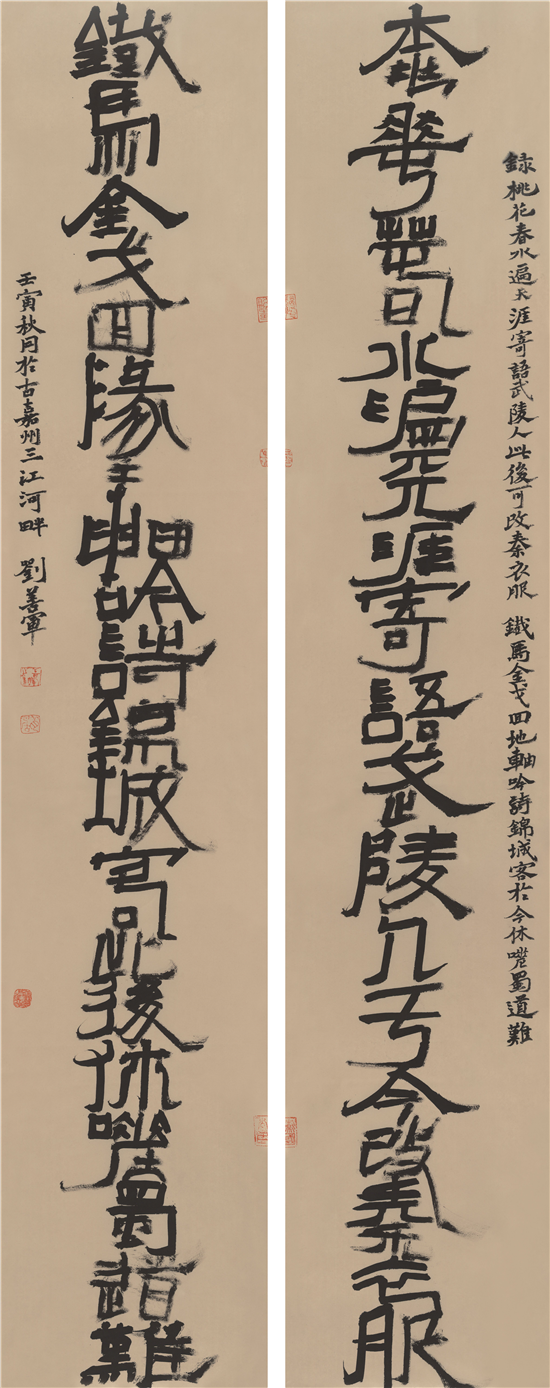 録桃花春水遍天涯寄語武陵人此後可改秦衣服 鐵馬金戈回地軸吟詩錦城客於今休嗟蜀道難
桃華萅水遍天涯寄語武陵人于今改秦衣服
鐵馬金戈回墬軸吟詩錦城客此後休嗟蜀道難
壬寅秋月於古嘉州三江河畔 劉善軍